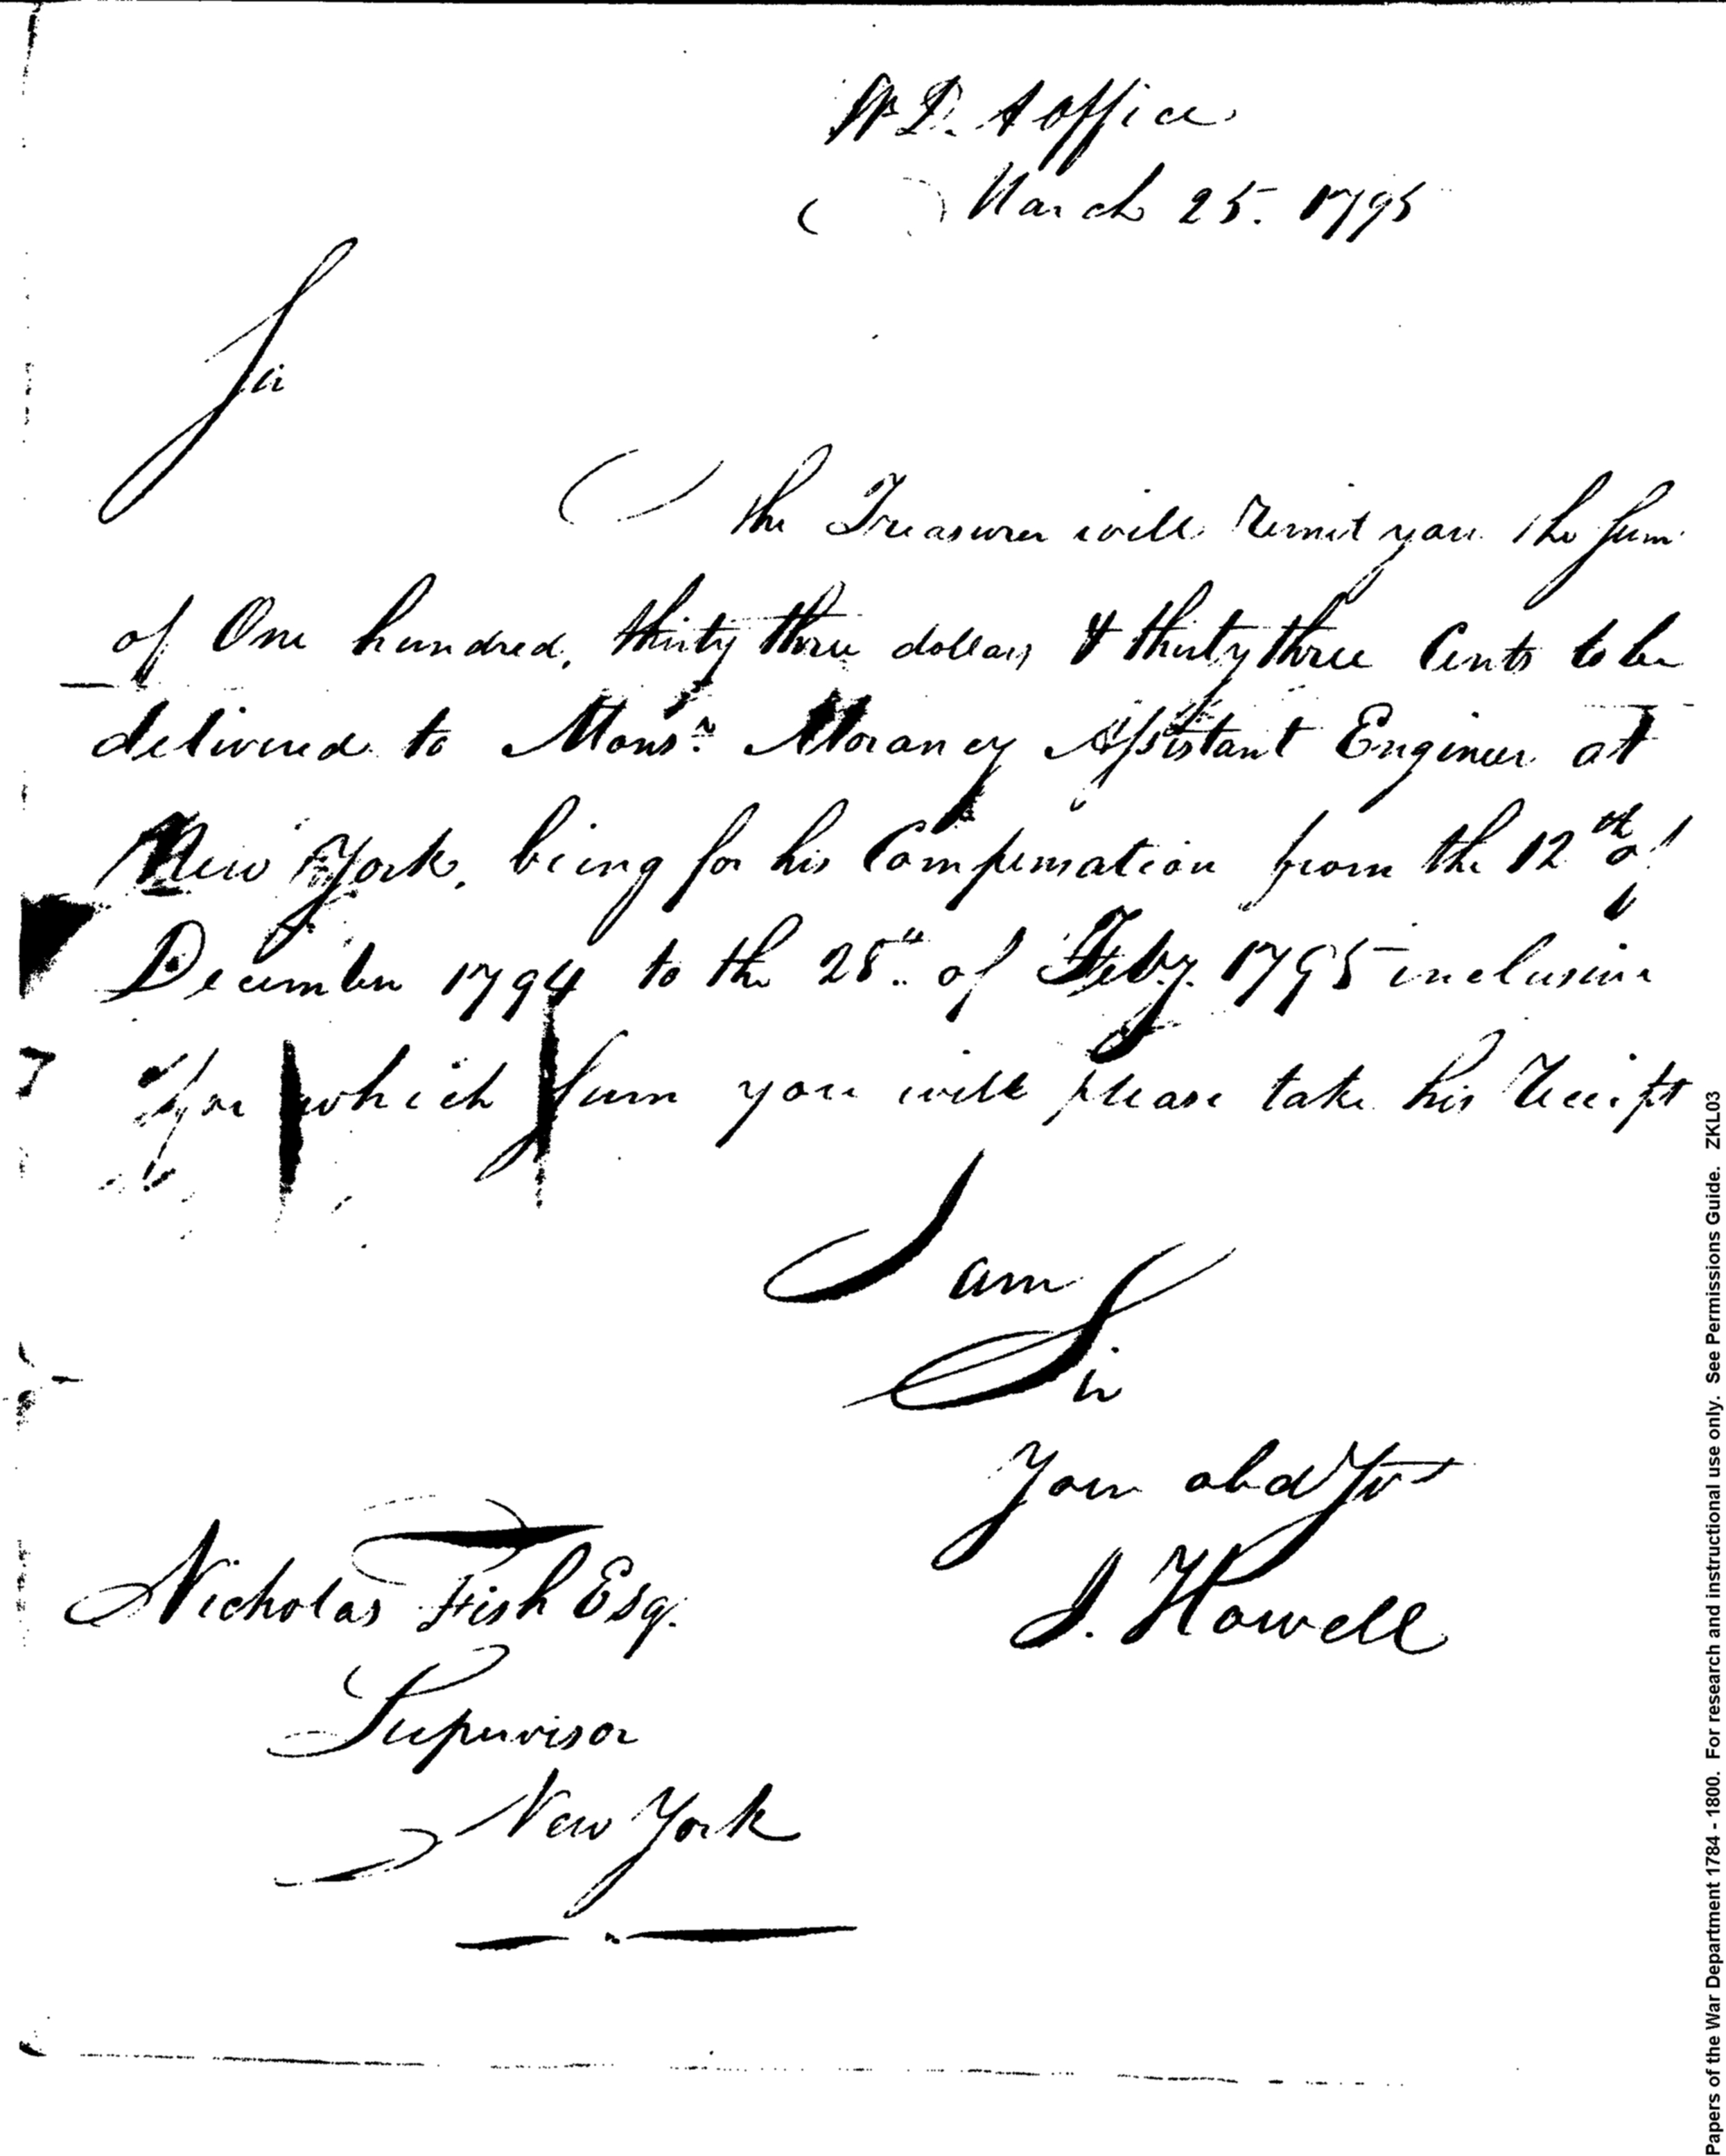 W. D. A office
March 25. 1795
Sir
the Treasurer will remit you the sum
of One hundred, thirty three dollars & thirty three Cents to be
delivered to Monsr. Morancy Assistant Engineer at
New York, being for his Compensation from the 12th of
December 1794 to the 28th. of Feby. 1795 inclusive
for which sum you will please take his Receipt
I am
Sir
Your obd Svt
J. Howell
Nicholas Fish Esq.
Supervisor
New York
Papers of the War Department 1784 - 1800. For research and instructional use only. See Permissions Guide. ZKL03